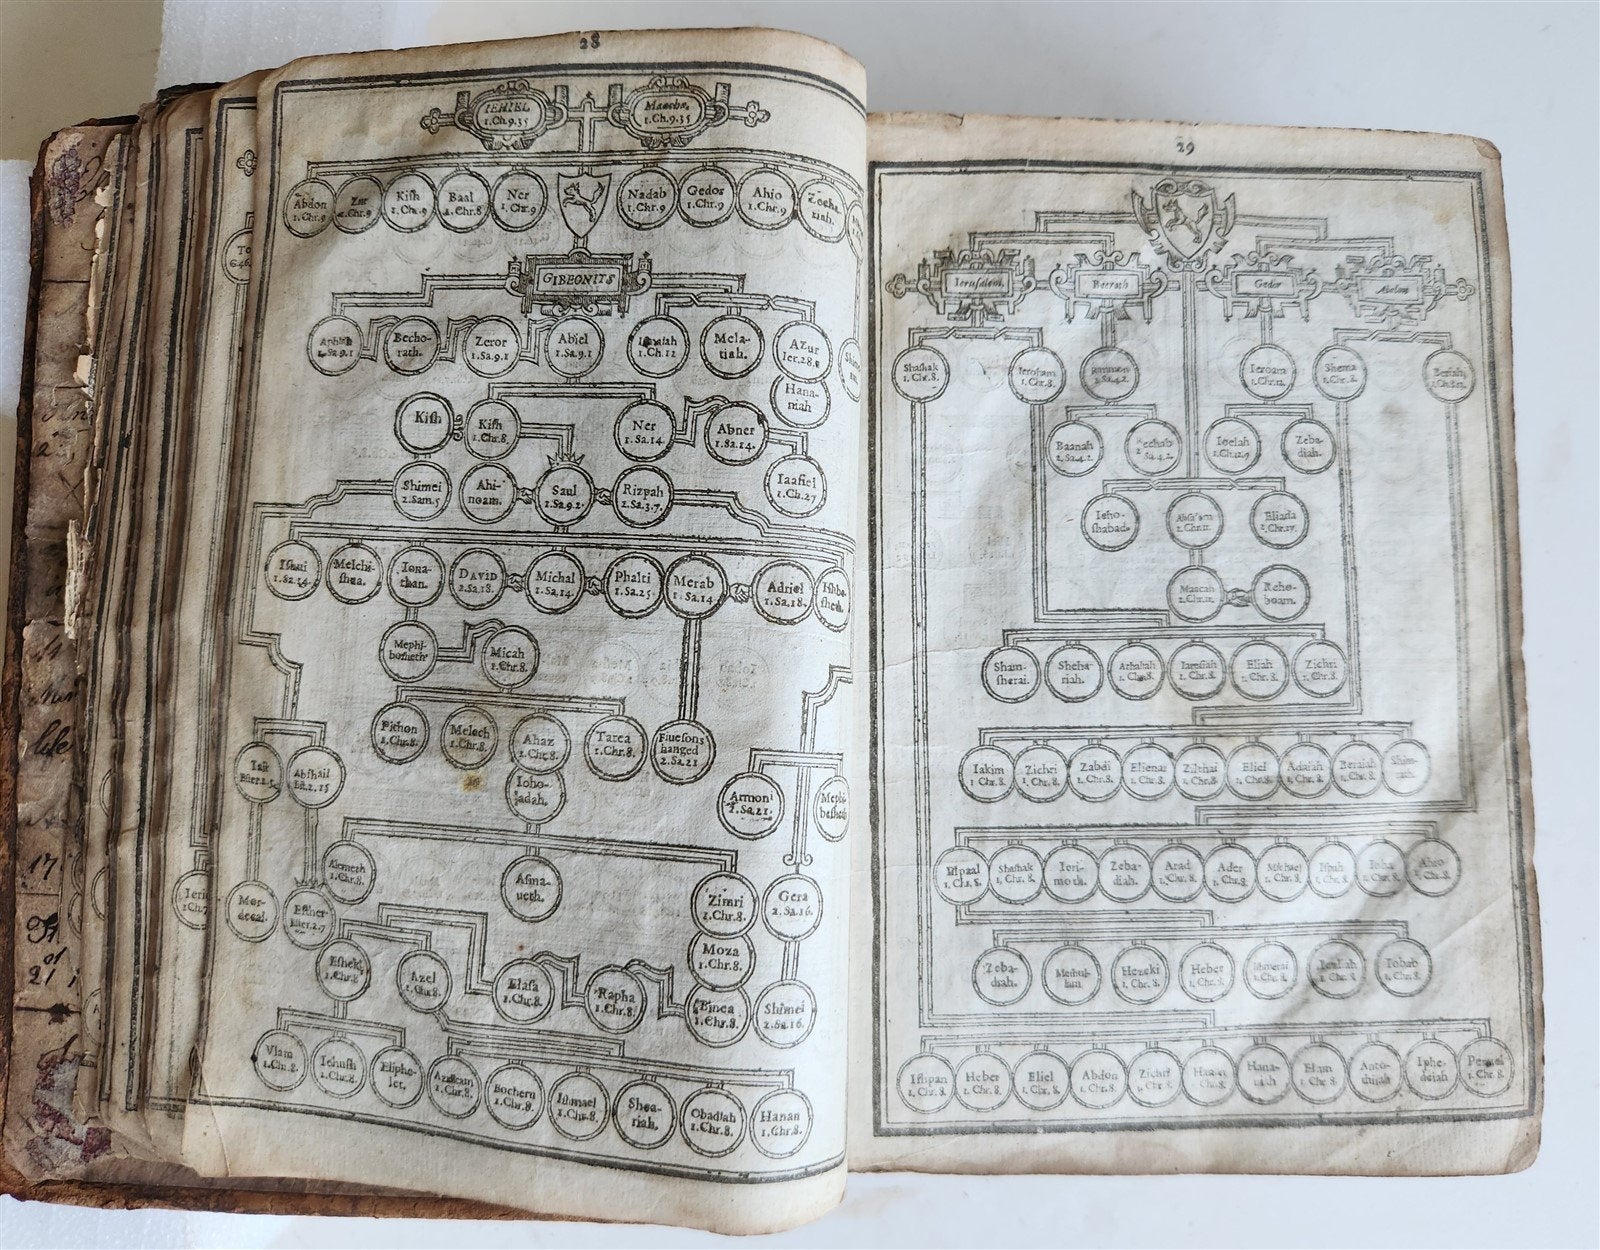 28
IEHIEL
1.Ch.9.35
Maacha.
1.Ch.9.35
Abdon
1.Chr.9
Zur
1.Chr.9
Kiſh
1.Ch.9
Baal
1.Chr.8
Ner
1.Chr.9
Nadab
1.Chr.9
Gedor
1.Chr.9
Ahio
1.Chr.9
Zecha-
riah.
GIBEONITS
Aphiah
1.Sa.9.1
Becho-
rath.
Zeror
1.Sa.9.1
Abiel
1.Sa.9.1
1.Ch.12
Mela-
tiah.
Azur
Ier.28.
Hana-
niah
Kiſh
Kiſh
1.Chr.8.
Ner
1.Sa.14.
Abner
1.Sa.14.
Iaaſiel
1.Ch.27
Shimei
2.Sam.5
Ahi-
noam.
Saul
1.Sa.9.2.
Rizpah
2.Sa.3.7.
Iſhui
1.Sa.14.
Melchi-
ſhua.
Iona-
than.
DAVID
1.Sa.18.
Michal
1.Sa.14.
Phalti
1.Sa.25
Merab
1.Sa.14
Adriel
1.Sa.18.
Iſhbo-
ſheth.
Mephi-
boſheth
Micah
1.Chr.8.
Pithon
1.Chr.8.
Melech
1.Chr.8.
Ahaz
1.Chr.8.
Tarea
1.Chr.8.
Fiue ſons
hanged
2.Sa.21
Ieho-
jadah.
Iair
Eſter.2.5
Abihail
Eſt.2.15
Armoni
2.Sa.21.
Mephi-
boſheth
Alemeth
1.Chr.8.
Aſma-
ueth.
Zimri
1.Chr.8.
Gera
2.Sa.16.
Mor-
decai.
Eſther
Eſter.2.7
Moza
1.Chr.8.
Eſhek
1.Chr.8
Azel
1.Chr.8.
Elaſa
1.Chr.8.
Rapha
1.Chr.8.
Binea
1.Chr.8.
Shimei
2.Sa.16.
Vlam
1.Chr.8.
Iehuſh
1.Chr.8.
Eliphe-
let.
Azrikam
1.Chr.8.
Bocheru
1.Chr.8.
Iſhmael
1.Chr.8.
Shea-
riah.
Obadiah
1.Chr.8.
Hanan
1.Chr.8.
29
Ieruſalem.
Beeroth
Gedor
Shaſhak
1.Chr.8.
Ieroham
1.Chr.8.
Rimmon
2.Sa.4.2.
Ieroam
1.Chr.12.
Shema
1.Chr.8.
Beriah
1.Ch.8.13.
Baanah
2.Sa.4.2.
Rechab
2.Sa.4.2.
Ioelah
1.Ch.12.9
Zeba-
diah.
Ieho-
ſhabad.
2.Chr.11.
Eliada
2.Chr.17.
Maacah
2.Chr.11.
Reho-
boam.
Sham-
ſherai.
Sheha-
riah.
Athaliah
1.Chr.8.
Iareſiah
1.Chr.8.
Eliah
1.Chr.8.
Zichri
1.Chr.8.
Iakim
1.Chr.8.
Zichri
1.Chr.8.
Zabdi
1.Chr.8.
Elienai
1.Chr.8.
Zilthai
1.Chr.8.
Eliel
1.Chr.8.
Adaiah
1.Chr.8.
Beraiah
1.Chr.8.
Shim-
rath.
Elpaal
1.Chr.8.
Shaſhak
1.Chr.8.
Ieri-
moth.
Zeba-
diah.
Arad
1.Chr.8.
Ader
1.Chr.8.
Michael
1.Chr.8.
Iſpah
1.Chr.8.
Ioha
1.Chr.8.
Ahio
1.Chr.8.
Zeba-
diah.
Meſhul-
lam
Hezeki
1.Chr.8
Heber
1.Chr.8.
Iſhmerai
1.Chr.8
1.Chr.8
Iobab
1.Chr.8.
Iſhpan
1.Chr.8.
Heber
1.Chr.8.
Eliel
1.Chr.8.
Abdon
1.Chr.8.
Zichri
1.Chr.8.
Hanan
1.Chr.8.
Hana-
niah
Elam
1.Chr.8.
Anto-
thijah
Iphe-
deiah
Penuel
1.Chr.8.